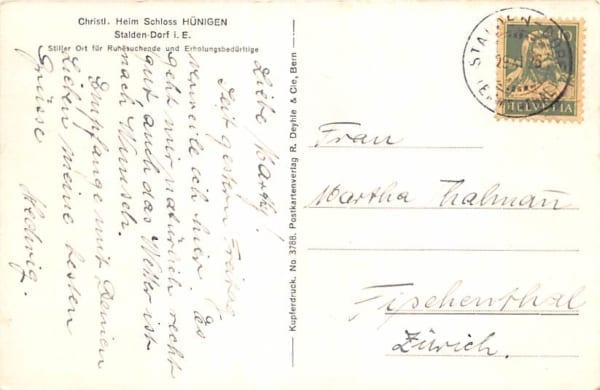 Christl. Heim Schloss HÜNIGEN
Stalden-Dorf i. E.
Stiller Ort für Ruhesuchende und Erholungsbedürftige
Liebe Marthy!
Seit gestern Freitag
verweile ich hier. Es
geht mir natürlich recht
gut auch das Wetter ist
nach Wunsch.
Empfange mit Deinen
Lieben meine besten
Grüsse Hedwig.
Kupferdruck. No 3788. Postkartenverlag R. Deyhle & Cie, Bern
STALDEN
10
HELVETIA
Frau
Martha Zalmañ
Fischenthal
Zürich.